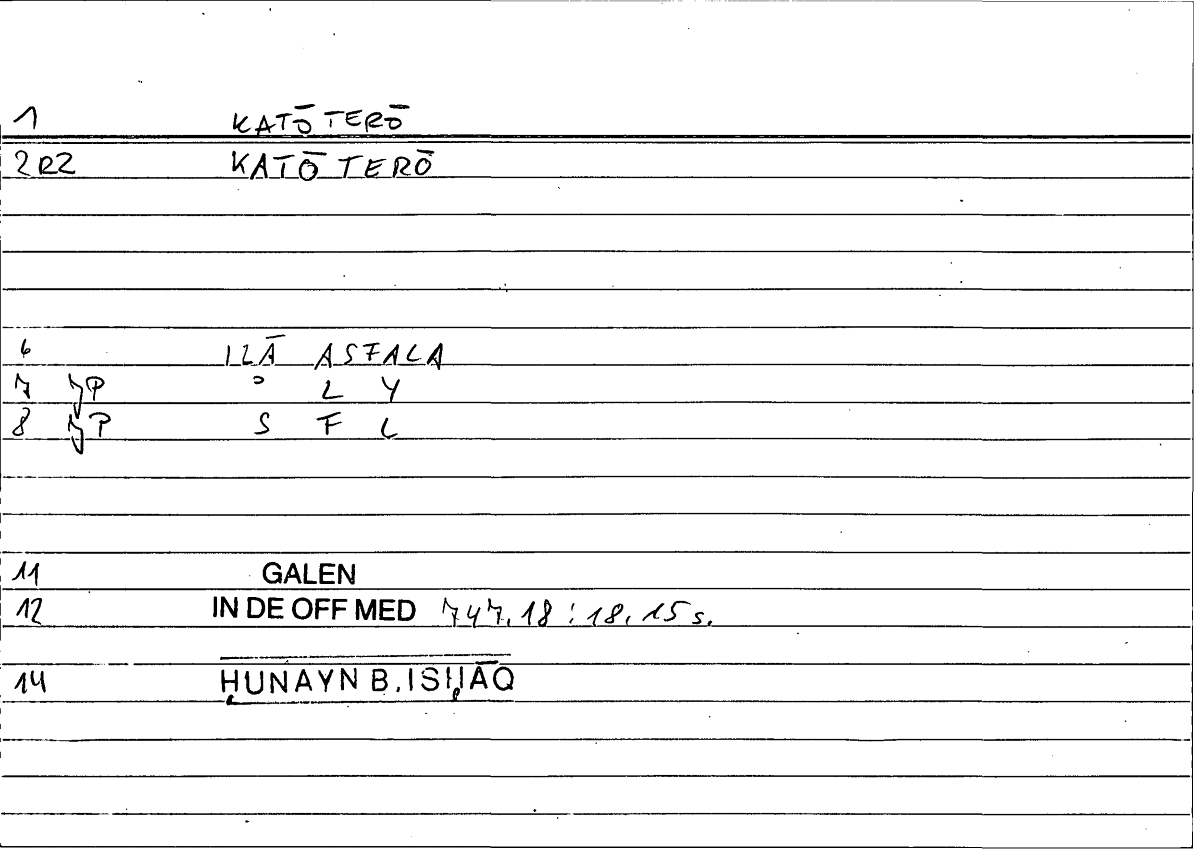 1 KATŌTERŌ
2RZ KATŌTERŌ
6 ILĀ ASFALA
7 JP ᵓ L Y
8 JP S F L
11 GALEN
12 IN DE OFF MED 747.18 : 18.15 s.
14 ḤUNAYN B. ISḤĀQ